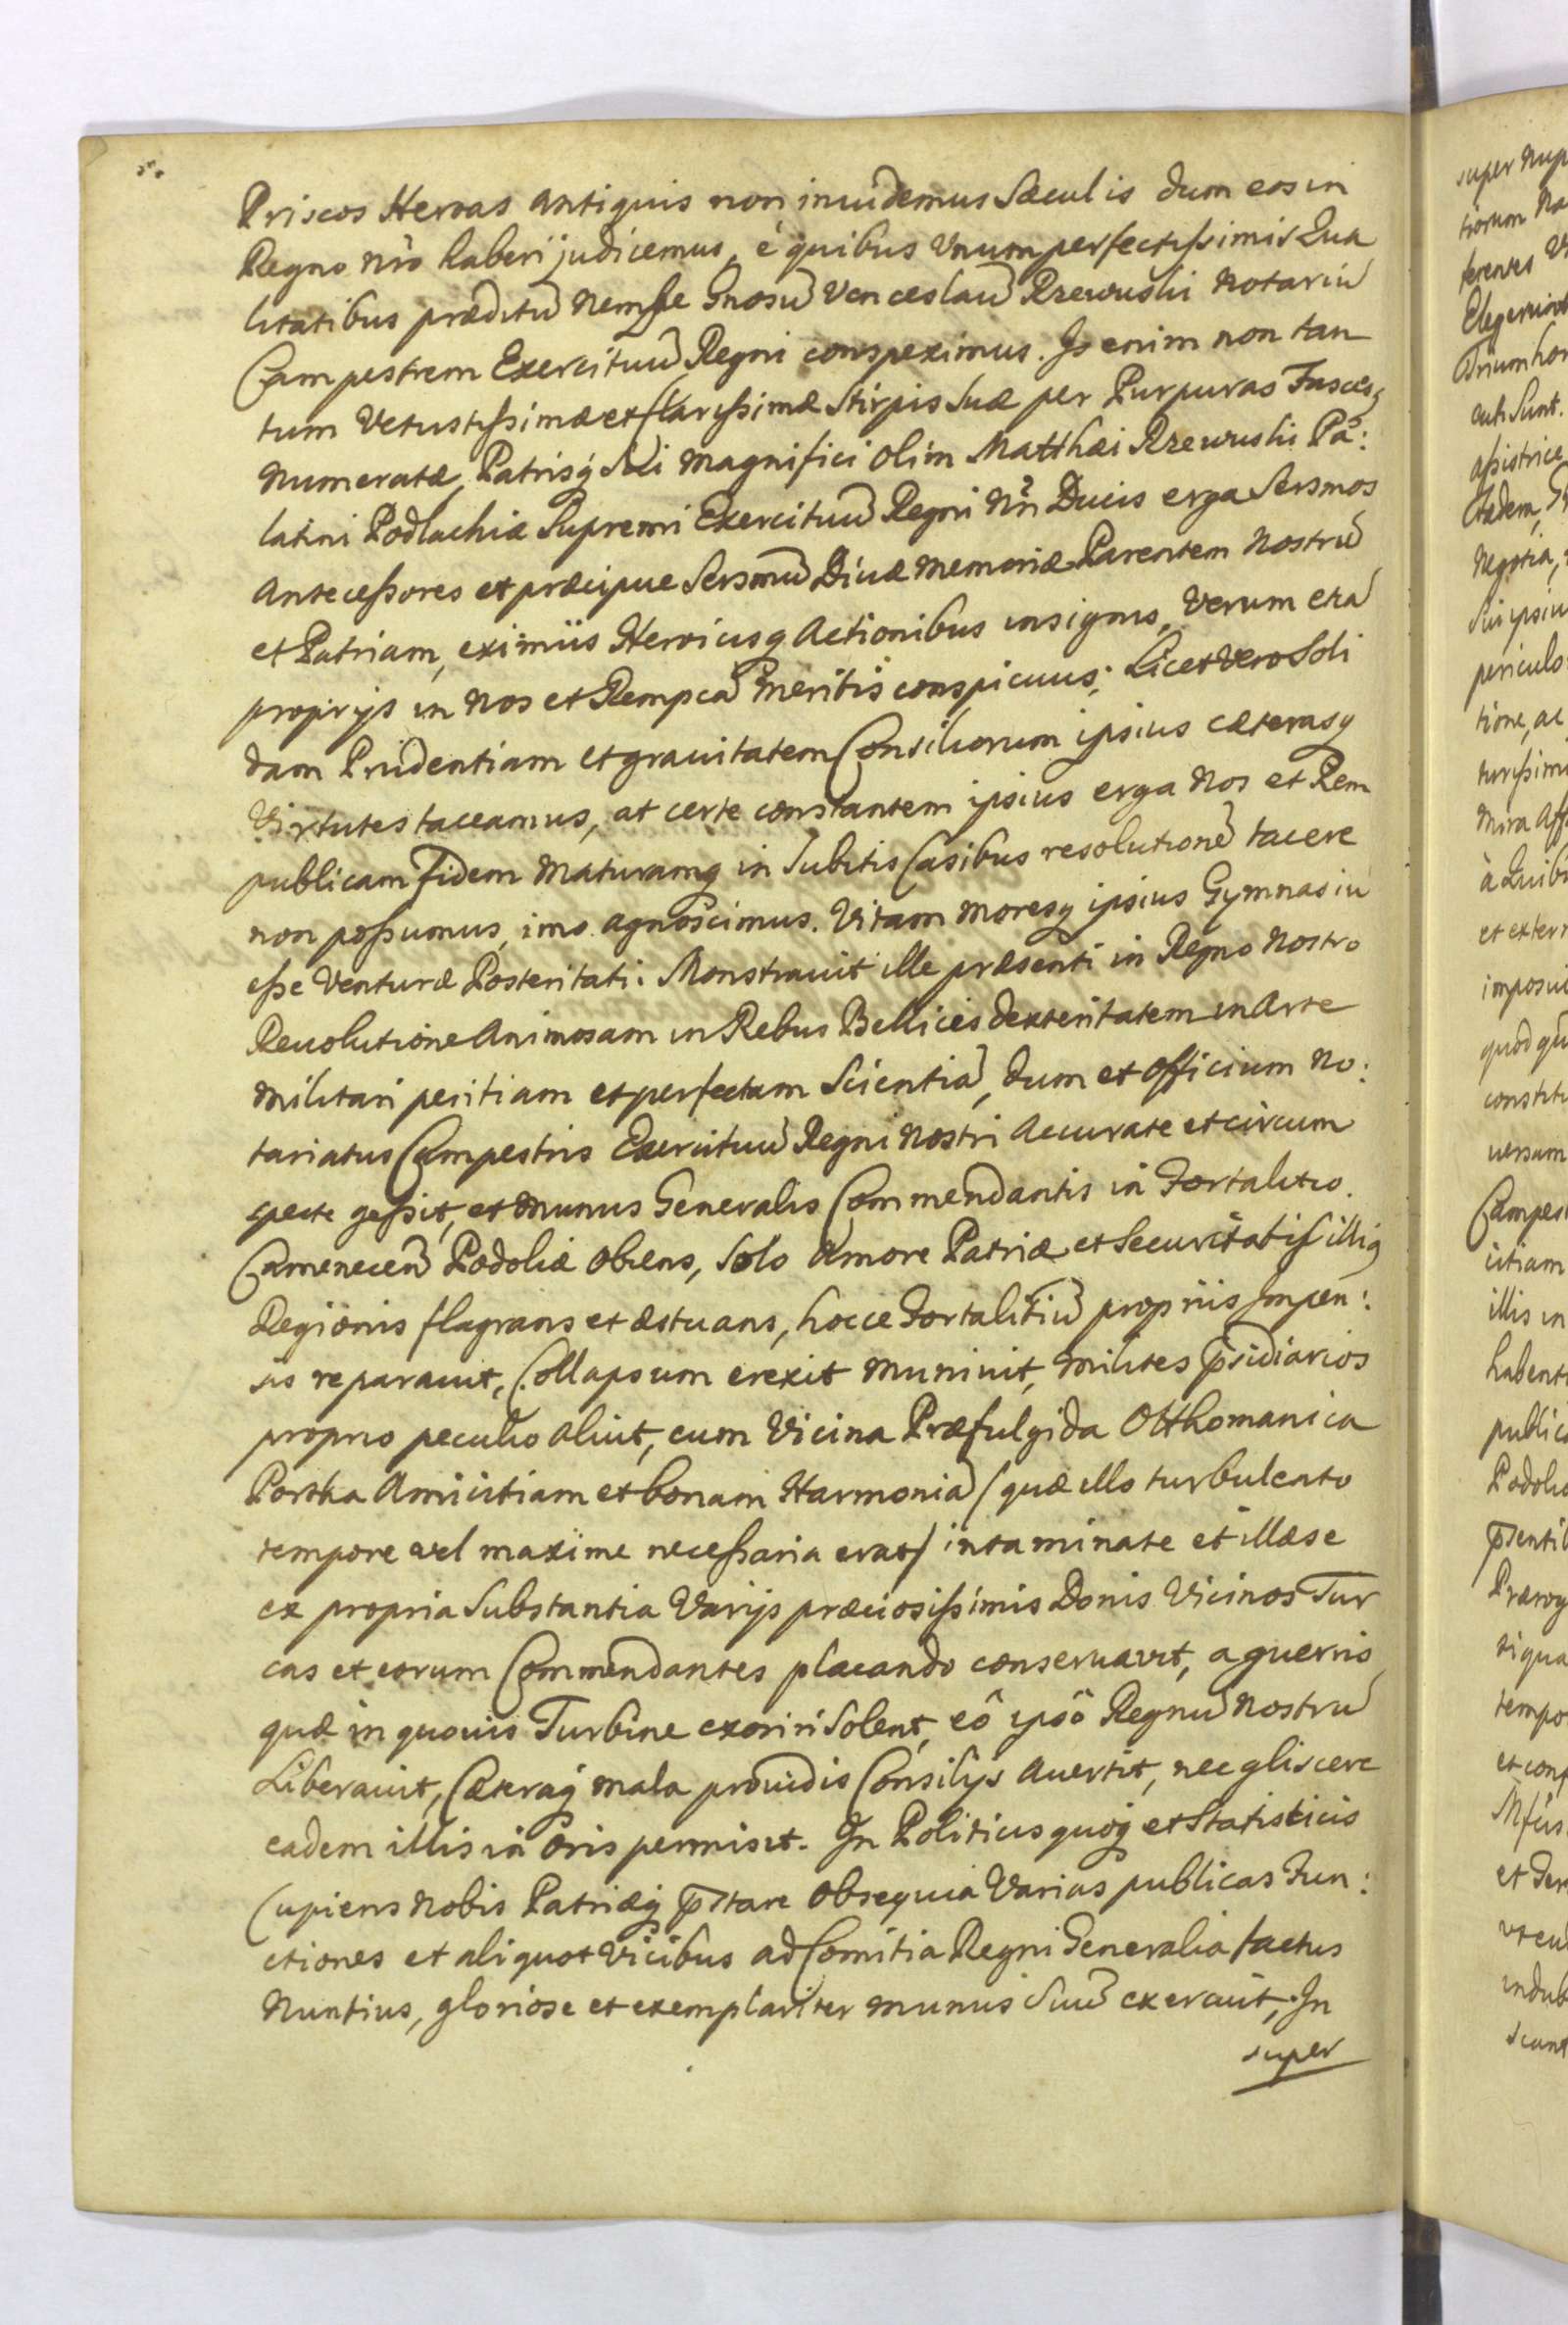 Priscos Heroas antiquis non inuidemus Sæculis dum eos in
Regno nrô haberi judicemus, é quibus Vnum perfectißimis Qua
litatibus præditū nempe Gnosū Venceslaū Rzewuski Notariū
Campestrem Exercituū Regni conspeximus. Is enim non tan
tum Vetustißimæ et Clarißimæ Stirpis suæ per Purpuras Fascesq
numeratæ, Patrisq sui Magnifici olim Matthæi Rzewuski Pa:
latini Podlachiæ Supremi Exercituū Regni Nri Ducis erga Sersmos
Anteceßores et præcipue Sersmū Diuæ Memoriæ Parentem Nostrū
et Patriam, eximiis Heroicisq Actionibus insignis, Verum etiā
proprijs in Nos et Rempcā Meritis conspicuus; Licet vero Soli
dam Prudentiam et grauitatem Consiliorum ipsius cæterasq
Virtutes taceamus, at certe constantem ipsius erga Nos et Rem
publicam Fidem Maturamq in Subitis Casibus resolutionē tacere
non poßumus, imo agnoscimus. Vitam Moresq ipsius Gymnasiū
eße Venturæ Posteritati. Monstrauit ille præsenti in Regno Nostro
Reuolutione Animosam in Rebus Bellicis dexteritatem in Arte
Militari peritiam et perfectam Scientiā, dum et Officium No:
tariatus Campestris Exercituū Regni Nostri Accurate et circum
specte geßit, et Munus Generalis Commendantis in Fortalitio
Camenecen Podoliæ obiens, Solo Amore Patriæ et Securitatis illiq
Regionis flagrans et æstuans, hocce Fortalitiū propriis Impen:
sis reparauit, Collapsum erexit Muniuit, Milites p̄sidiarios
proprio peculio aluit, cum Vicina Præfulgida Otthomanica
Portha Amicitiam et bonam Harmoniā (quæ illo turbulento
tempore vel maxime neceßaria erat) intaminate et illæse
ex propria Substantia Varijs præciosißimis Donis Vicinos Tur
cas et eorum Commendantes placando conseruavit, a guerris
quæ in quouis Turbine exoriri Solent, eô ipsô Regnū Nostrū
Liberauit, Cæteraq mala prouidis Consilijs Auertit, nec gliscere
eadem illis in Oris permisit. In Politicis quoq et Statisticis
Cupiens Nobis Patriæq p̄stare Obsequia Varias publicas Fun:
ctiones et aliquot Vicibus ad Comitia Regni Generalia factus
Nuntius, gloriose et exemplariter munus Suū exercuit, In
super
super Nup
tiorum Na
ferentes
Elegerint
Trium hor
cuti Sunt.
aßistrice
Eadem,
Negotia,
Sui ipsiu
periculo
tione, ac
turißim
Mira Aff
à Quib
et exter
imposui
quod
constit
uersum
Campes
citiam
illis in
habent
public
Podolia
p̄sentib
Prærog
tiqua
tempo
et conf
et Gen
indub